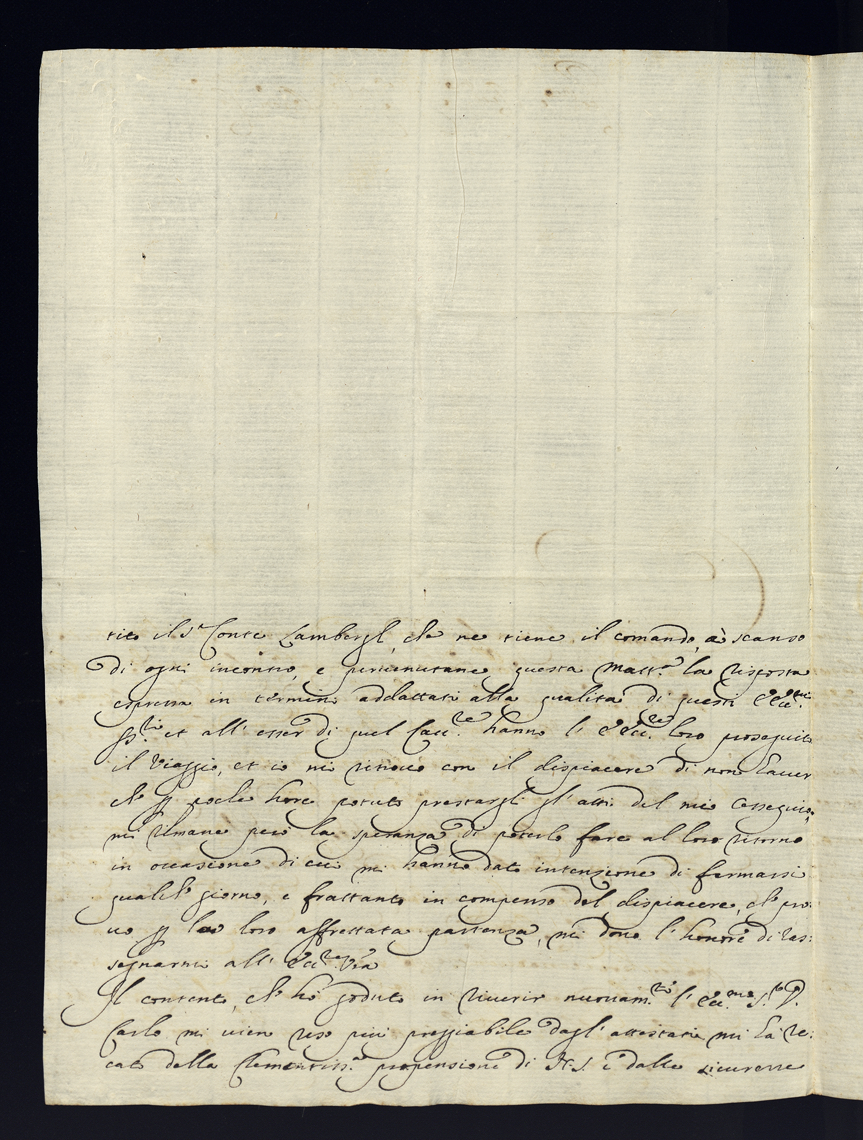 tito il S.r Conte Lambergh, che ne tiene il comando, à scanso
di ogni incontro, e pervenutane questa matt.a la risposta
espressa in termini addattati alla qualità di questi Ecc.mi
SS.ri et all' esser di quel Cau.re hanno l' Ecc.ze loro proseguito
il viaggio, et io mi ritrovo con il dispiacere di non haver
che p poche hore potuto prestargli gl' atti del mio ossequio,
mi rimane però la speranza di poterlo fare al loro ritorno
in occasione di cui mi hanno dato intenzione di fermarsi
qualche giorno, e frattanto in compenso del dispiacere, che pro:
uo p la loro affrettata partenza, mi dono l' honore di ras:
segnarmi all' Ecc.za V.ra
Il contento, che hò goduto in riverir nuovam.te l' Ecc.mo S.r D.
Carlo mi vien reso più preggiabile dagl' attestati mi hà re:
cato della Clementiss.a propensione di N.S. e dalle sicurezze